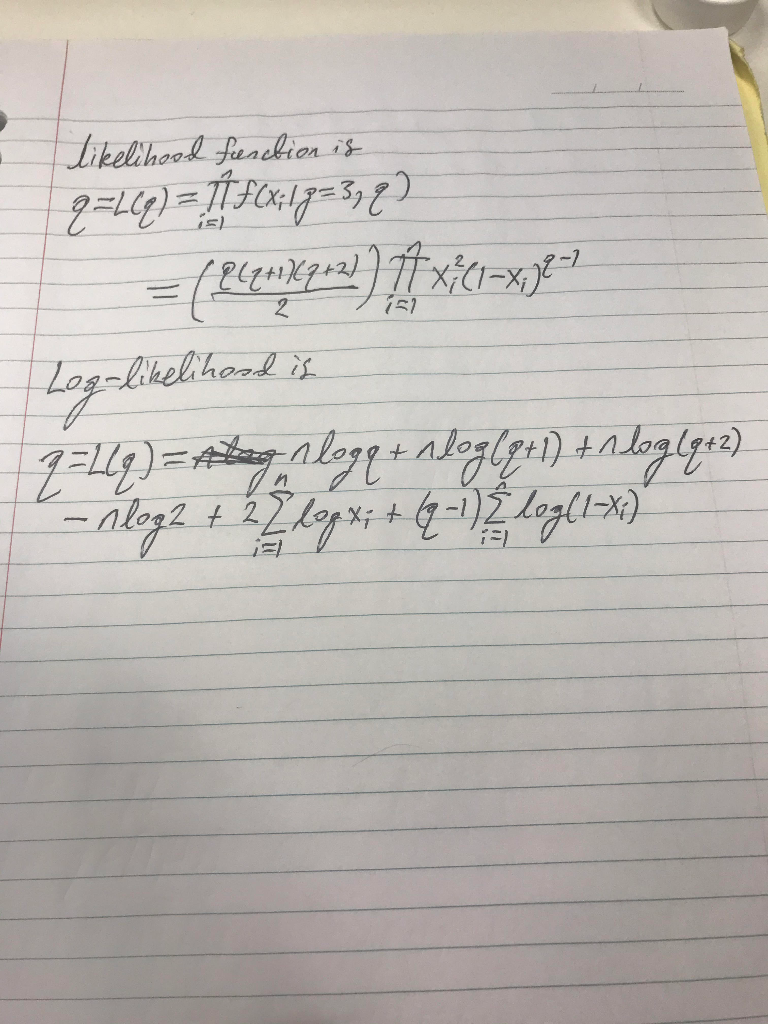 likelihood function is
q=L(q) = ∏ⁿᵢ₌₁ f(xᵢ | g=3, q)
= (q(q+1)(q+2)/2) ∏ⁿᵢ₌₁ xᵢ²(1-xᵢ)^(q-1)
Log-likelihood is
q=L(q) = n log q + n log(q+1) + n log(q+2)
- n log 2 + 2 ∑ⁿᵢ₌₁ log xᵢ + (q-1) ∑ⁿᵢ₌₁ log(1-xᵢ)